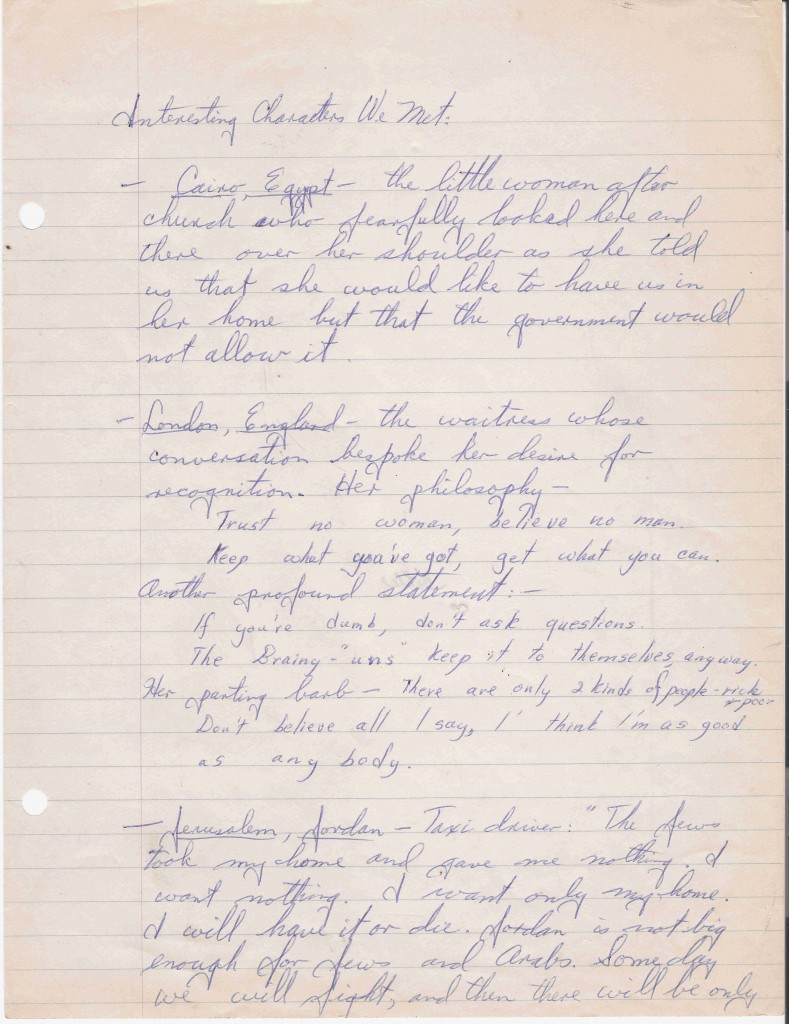 Interesting Characters We Met:
- Cairo, Egypt - the little woman after
church who fearfully looked here and
there over her shoulder as she told
us that she would like to have us in
her home but that the government would
not allow it.
- London, England - the waitress whose
conversation bespoke her desire for
recognition. Her philosophy -
Trust no woman, believe no man.
Keep what you've got, get what you can.
Another profound statement: -
If you're dumb, don't ask questions.
The Brainy-"uns" keep it to themselves, anyway.
Her parting barb - There are only 2 kinds of people - rich
+ poor
Don't believe all I say, I think I'm as good
as any body.
- Jerusalem, Jordan - Taxi driver: "The Jews
took my home and gave me nothing. I
want nothing. I want only my home.
I will have it or die. Jordan is not big
enough for Jews and Arabs. Some day
we will fight, and then there will be only